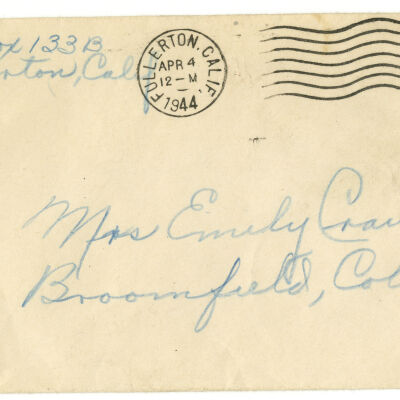 ox 133B
rton, Calif
FULLERTON, CALIF.
APR 4
12-M
1944
Mrs Emily Craw
Broomfield, Col